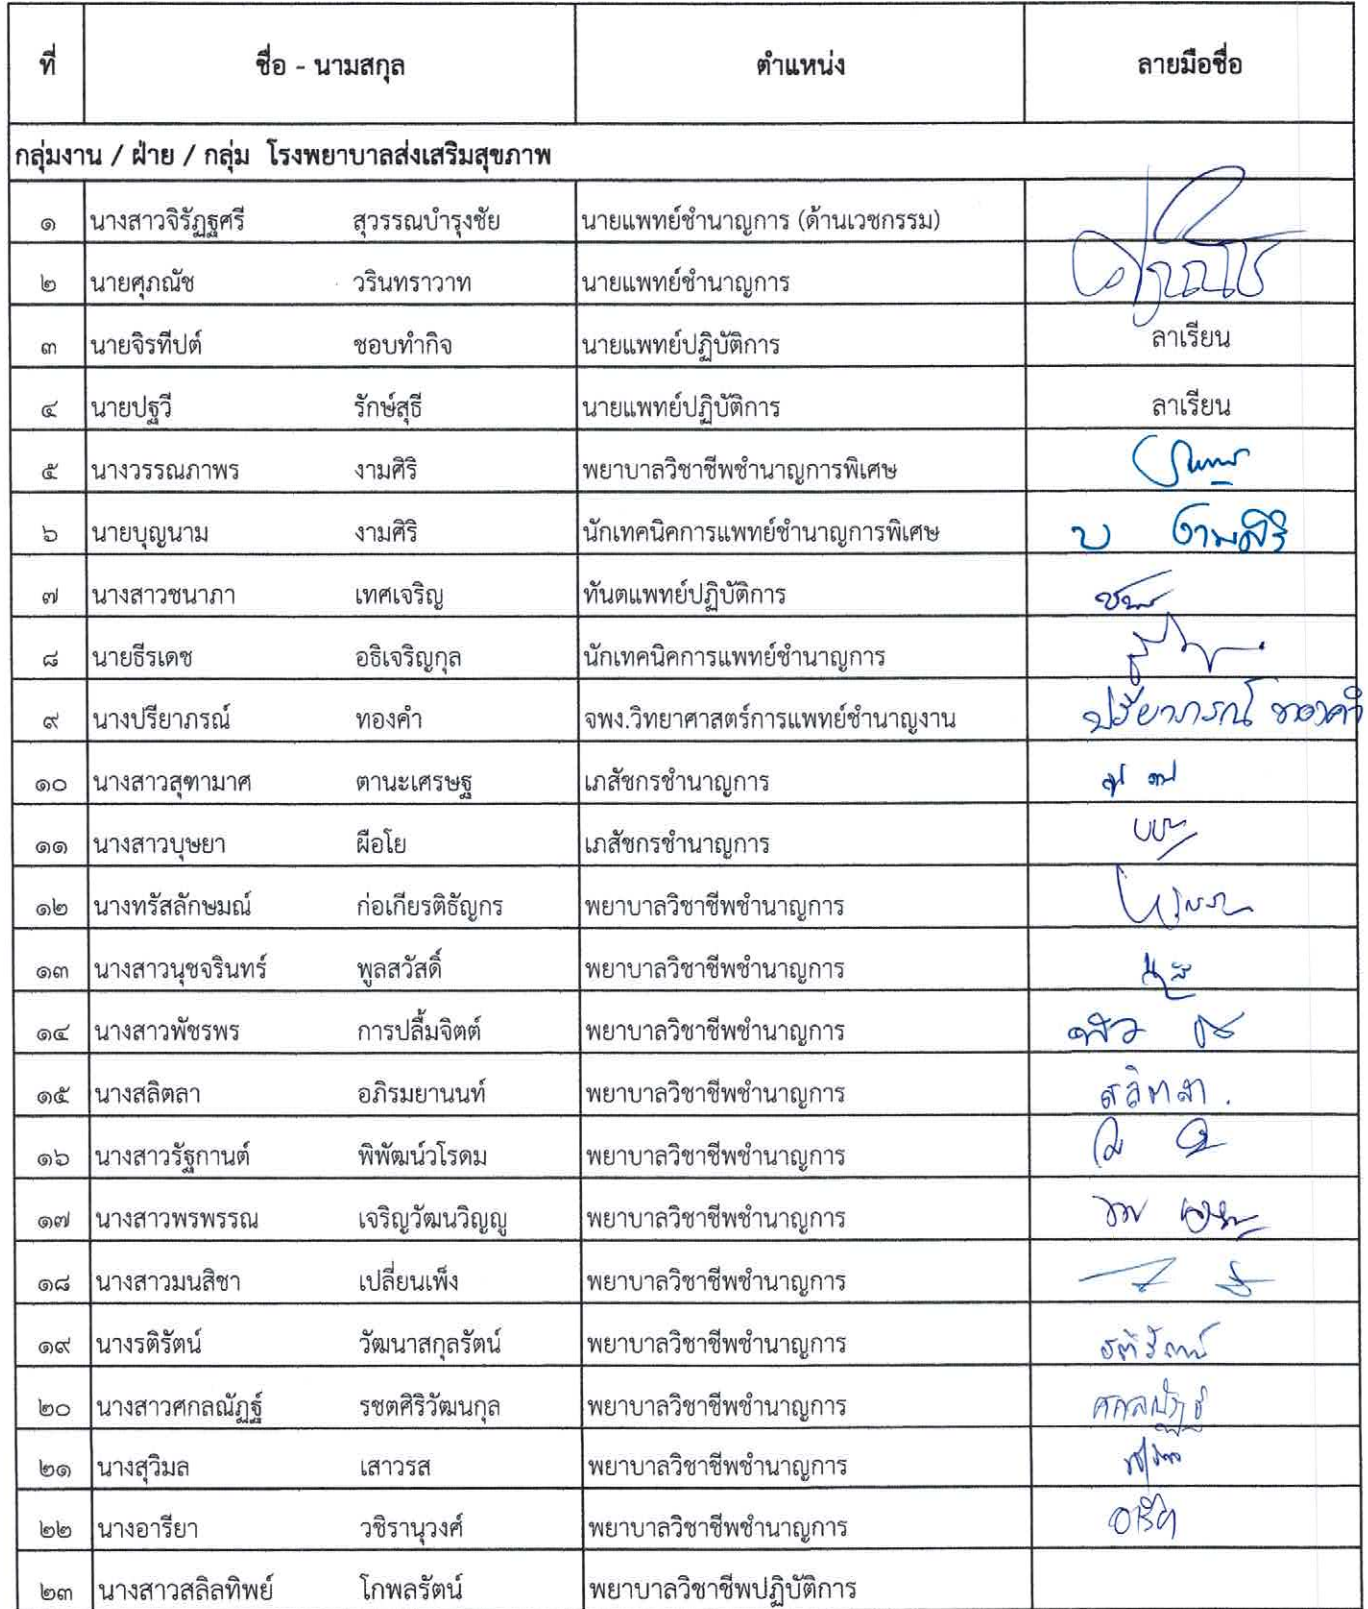 ที่ ชื่อ - นามสกุล ตำแหน่ง ลายมือชื่อ
กลุ่มงาน / ฝ่าย / กลุ่ม โรงพยาบาลส่งเสริมสุขภาพ
๑ นางสาวจิรัฏฐศรี สุวรรณบำรุงชัย นายแพทย์ชำนาญการ (ด้านเวชกรรม)
๒ นายศุภณัช วรินทราวาท นายแพทย์ชำนาญการ
๓ นายจิรทีปต์ ชอบทำกิจ นายแพทย์ปฏิบัติการ ลาเรียน
๔ นายปฐวี รักษ์สุธี นายแพทย์ปฏิบัติการ ลาเรียน
๕ นางวรรณภาพร งามศิริ พยาบาลวิชาชีพชำนาญการพิเศษ
๖ นายบุญนาม งามศิริ นักเทคนิคการแพทย์ชำนาญการพิเศษ บ งามศิริ
๗ นางสาวชนาภา เทศเจริญ ทันตแพทย์ปฏิบัติการ
๘ นายธีรเดช อธิเจริญกุล นักเทคนิคการแพทย์ชำนาญการ
๙ นางปรียาภรณ์ ทองคำ จพง.วิทยาศาสตร์การแพทย์ชำนาญงาน ปรียาภรณ์ ทองคำ
๑๐ นางสาวสุฑามาศ ตานะเศรษฐ เภสัชกรชำนาญการ
๑๑ นางสาวบุษยา ผือโย เภสัชกรชำนาญการ
๑๒ นางทรัสลักษมณ์ ก่อเกียรติธัญกร พยาบาลวิชาชีพชำนาญการ
๑๓ นางสาวนุชจรินทร์ พูลสวัสดิ์ พยาบาลวิชาชีพชำนาญการ
๑๔ นางสาวพัชรพร การปลื้มจิตต์ พยาบาลวิชาชีพชำนาญการ
๑๕ นางสลิตลา อภิรมยานนท์ พยาบาลวิชาชีพชำนาญการ สลิตลา .
๑๖ นางสาวรัฐกานต์ พิพัฒน์วโรดม พยาบาลวิชาชีพชำนาญการ
๑๗ นางสาวพรพรรณ เจริญวัฒนวิญญู พยาบาลวิชาชีพชำนาญการ
๑๘ นางสาวมนสิชา เปลี่ยนเพ็ง พยาบาลวิชาชีพชำนาญการ
๑๙ นางรติรัตน์ วัฒนาสกุลรัตน์ พยาบาลวิชาชีพชำนาญการ รติรัตน์
๒๐ นางสาวศกลณัฏฐ์ รชตศิริวัฒนกุล พยาบาลวิชาชีพชำนาญการ ศกลณัฏฐ์
๒๑ นางสุวิมล เสาวรส พยาบาลวิชาชีพชำนาญการ
๒๒ นางอารียา วชิรานุวงศ์ พยาบาลวิชาชีพชำนาญการ
๒๓ นางสาวสลิลทิพย์ โกพลรัตน์ พยาบาลวิชาชีพปฏิบัติการ